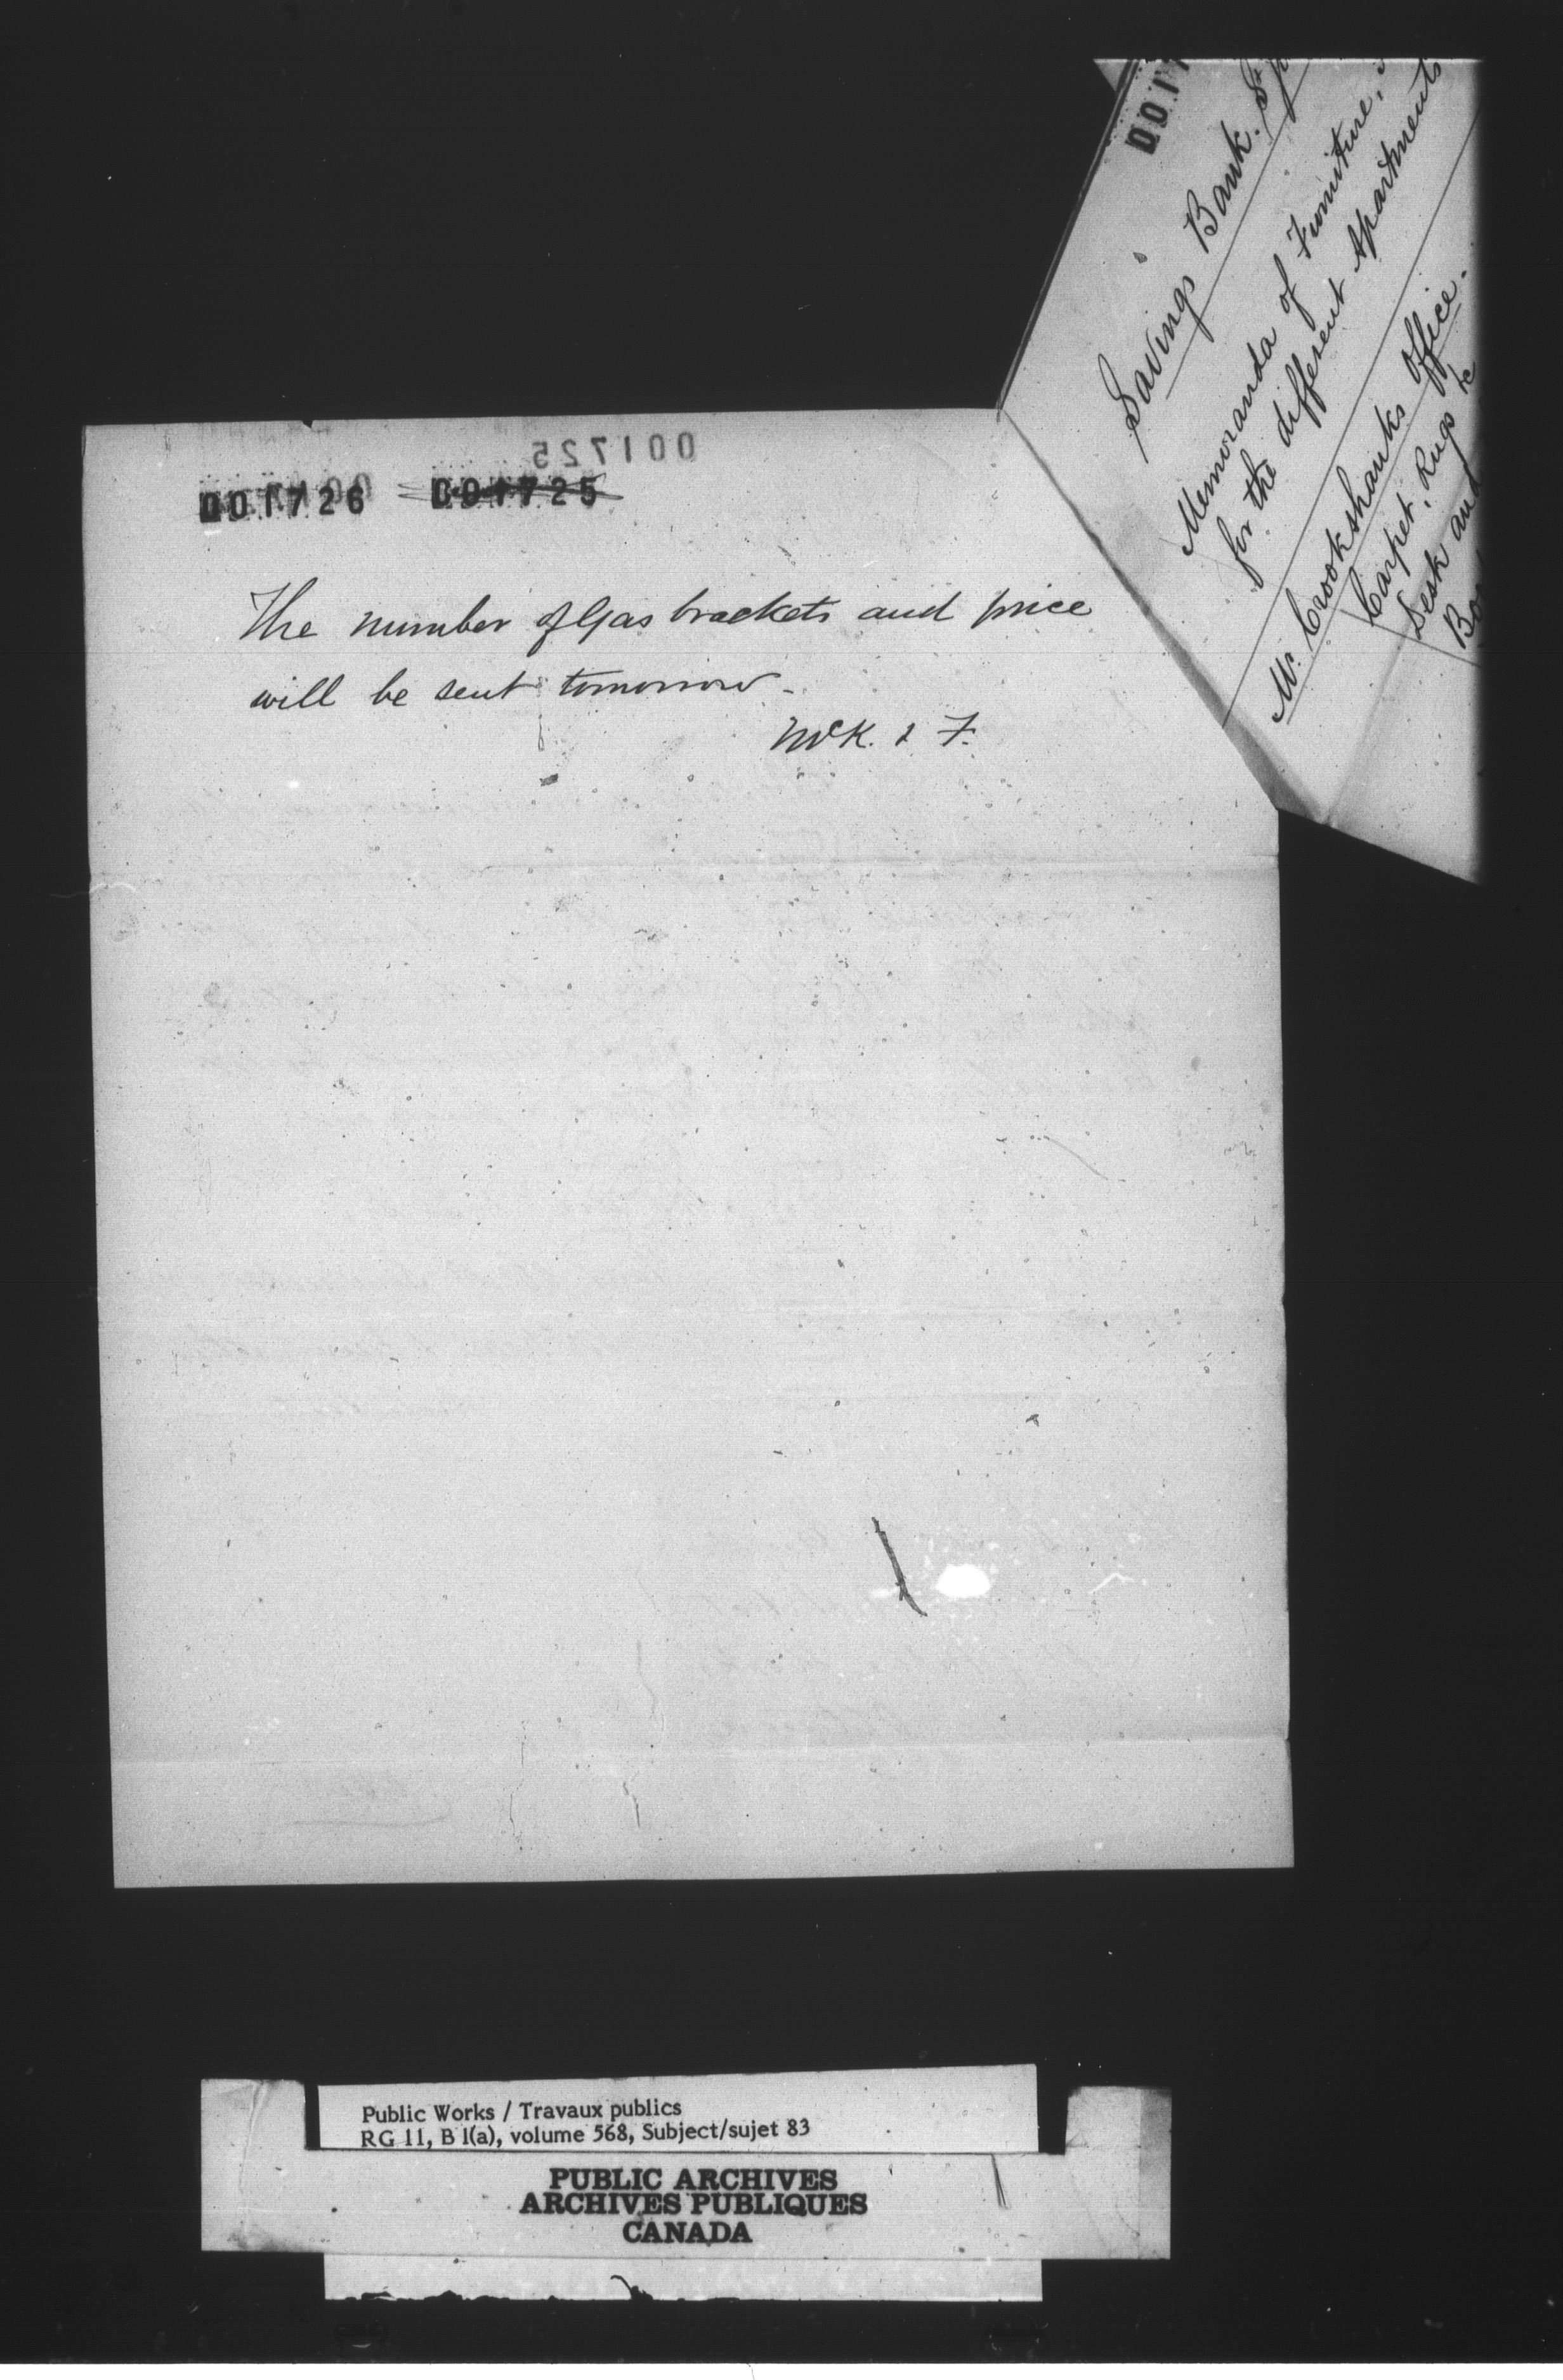 001725
001726 001725
The number of Gas brackets and price
will be sent tomorrow -
McK. & F.
0017
Savings Bank. St
Memoranda of Furniture,
for the different Apartments
Mr. Crookshanks Office.
Carpet, Rugs &c
Desk and
Public Works / Travaux publics
RG 11, B 1(a), volume 568, Subject/sujet 83
PUBLIC ARCHIVES
ARCHIVES PUBLIQUES
CANADA